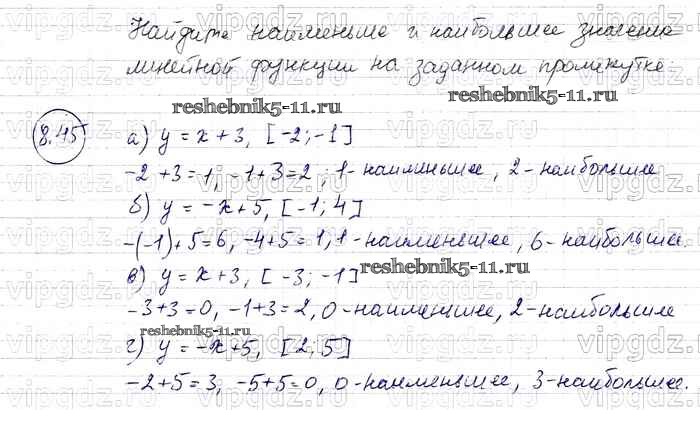 Найдите наименьше и наибольшее значение
линейной функции на заданном промежутке:
reshebnik5-11.ru
reshebnik5-11.ru
8.45
а) y = x + 3, [-2; -1]
-2 + 3 = 1, -1 + 3 = 2; 1 - наименьшее, 2 - наибольшее
б) y = -x + 5, [-1; 4]
-(-1) + 5 = 6, -4 + 5 = 1, 1 - наименьшее, 6 - наибольшее.
в) y = x + 3, [-3; -1]
reshebnik5-11.ru
-3 + 3 = 0, -1 + 3 = 2, 0 - наименьшее, 2 - наибольшее
reshebnik5-11.ru
г) y = -x + 5, [2; 5]
-2 + 5 = 3, -5 + 5 = 0, 0 - наименьшее, 3 - наибольшее.
vipgdz.ru